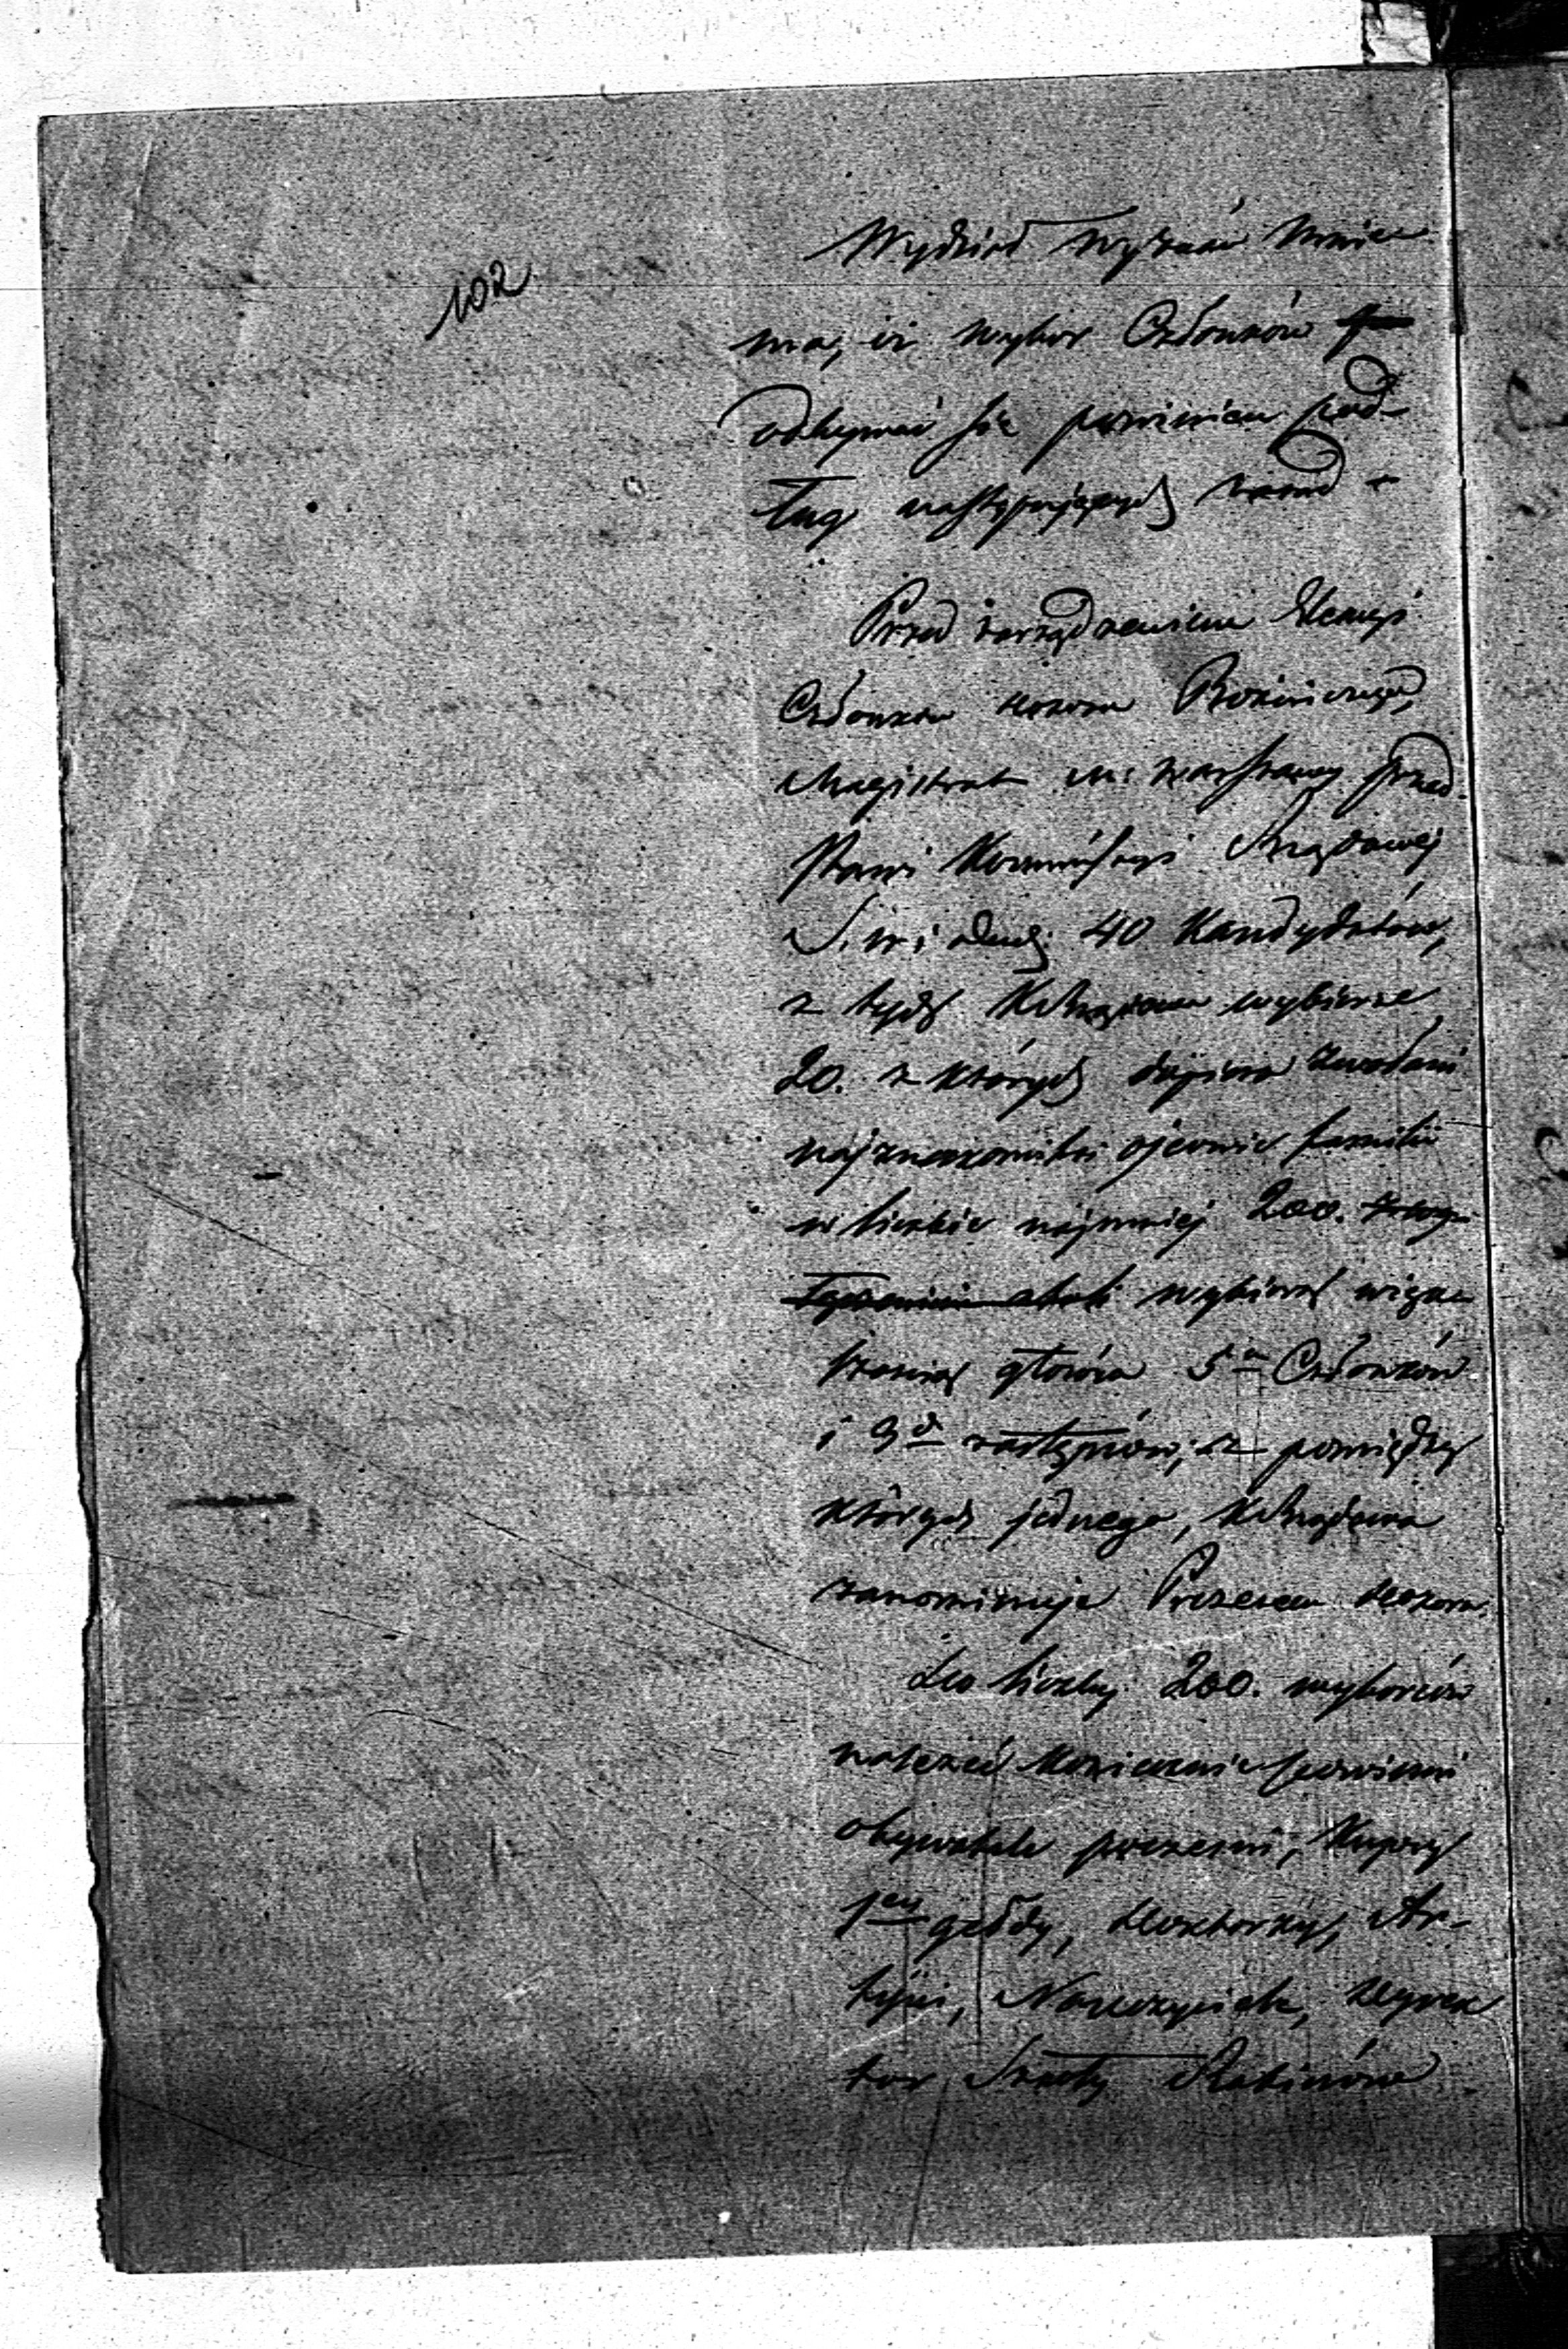 102
Wydział Wyznań mnie-
ma, iż wybor Członków
odbywać się powinien pod-
ług następujących zasad
Przed zarządzeniem Elekcyi
Członków Dozoru Bożniczego,
Magistrat M. Warszawy przed-
stawi Kommissyi Rządowej
S. W. i Duch: 40 Kandydatów,
z tych K Rządowa wybierze
20. z których dopiero zwołani
najznakomitsi ojcowie familii
w liczbie najmniej 200.
wybiorą więk-
szością głosów 5 Członków
i 3 zastępców; z pomiędzy
których jednego, K Rządowa
zanominuje Prezesem Dozoru.
Do liczby 200. wyborców
należeć koniecznie powinni
obywatele poczesni, Kupcy
1ey giełdy, Doktorzy, Ar-
tyści, Nauczyciele, Dyrek
tor Szkoły Rabinów